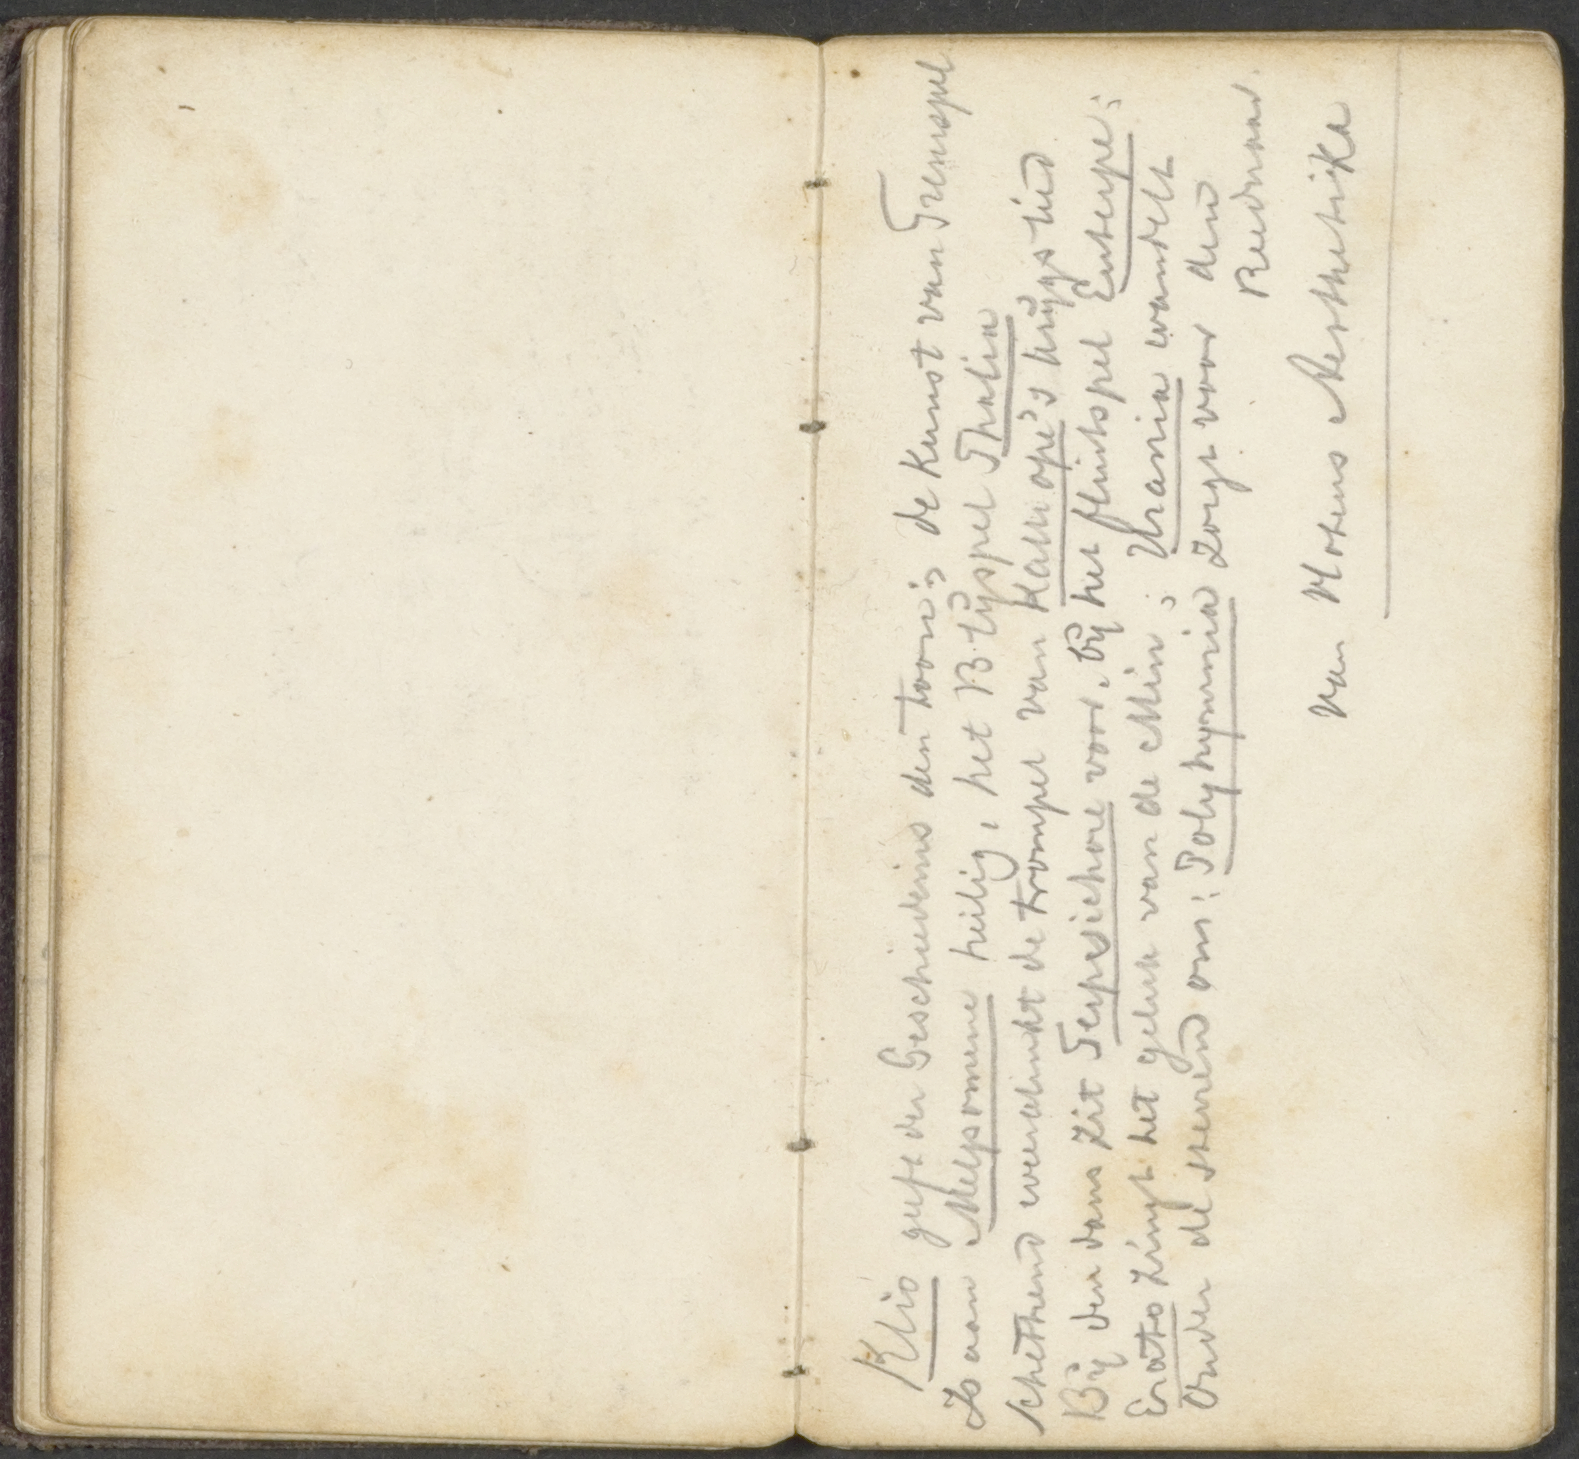 Klio geeft der Geschiedenis den toon; de Kunst van Treurspel
Is aan Melpomene heilig, het Blijspel Thalia
Schettrend weerklinkt de trompet van Kalliopé's krijgslied
Bij den dans zit Terpsichore voor, bij het fluitspel Euterpe;
Erato zingt het geluk van de Min; Urania wandelt
Onder de sterren om; Polyhymnia zorgt voor den
Redenaar.
Van Vlotens Aesthetika